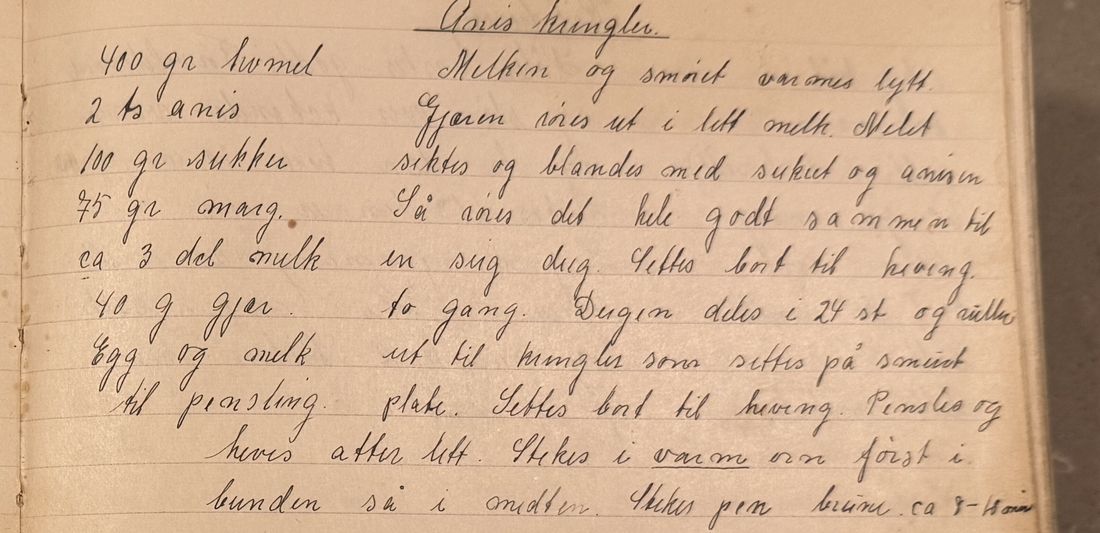 Anis kringler.
400 gr hvmel
2 ts anis
100 gr sukker
75 gr marg.
ca 3 del melk
40 g gjær.
Egg og melk
til pensling.
Melken og smøret varmes lytt.
Gjæren røres ut i litt melk. Melet
siktes og blandes med sukret og anisen
Så røres det hele godt sammen til
en seig deig. Settes bort til heving.
to gang. Deigen deles i 24 st og rulles
ut til kringler som settes på smurt
plate. Settes bort til heving. Pensles og
heves atter litt. Stekes i varm ovn først i
bunnden så i midten. Stekes pen brune. ca 8-10 min